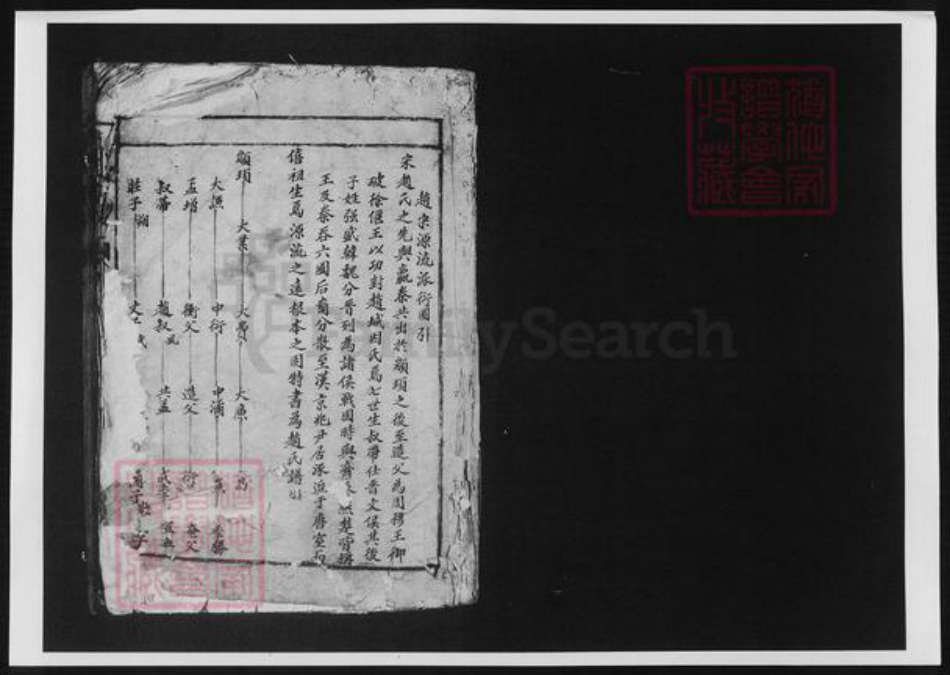 趙宗源流派衍圖引
宋趙氏之先與嬴秦共出於顓頊之後至造父為周穆王御
破徐偃王以功封趙城因氏焉七世生叔帶仕晉文侯其後
子姓强盛韓魏分晉列為諸侯戰國時與齊 燕楚皆稱
王及秦吞六國后裔分散至漢京兆尹居涿迨于唐室
僖祖生焉源流之遠根本之固特書為趙氏譜引
顓頊 大業 大費 大廉
大 中衍 中潏 季勝
孟增 衡父 造父 奄父
叔帶 趙夙 共孟
莊子朔 文
FamilySearch